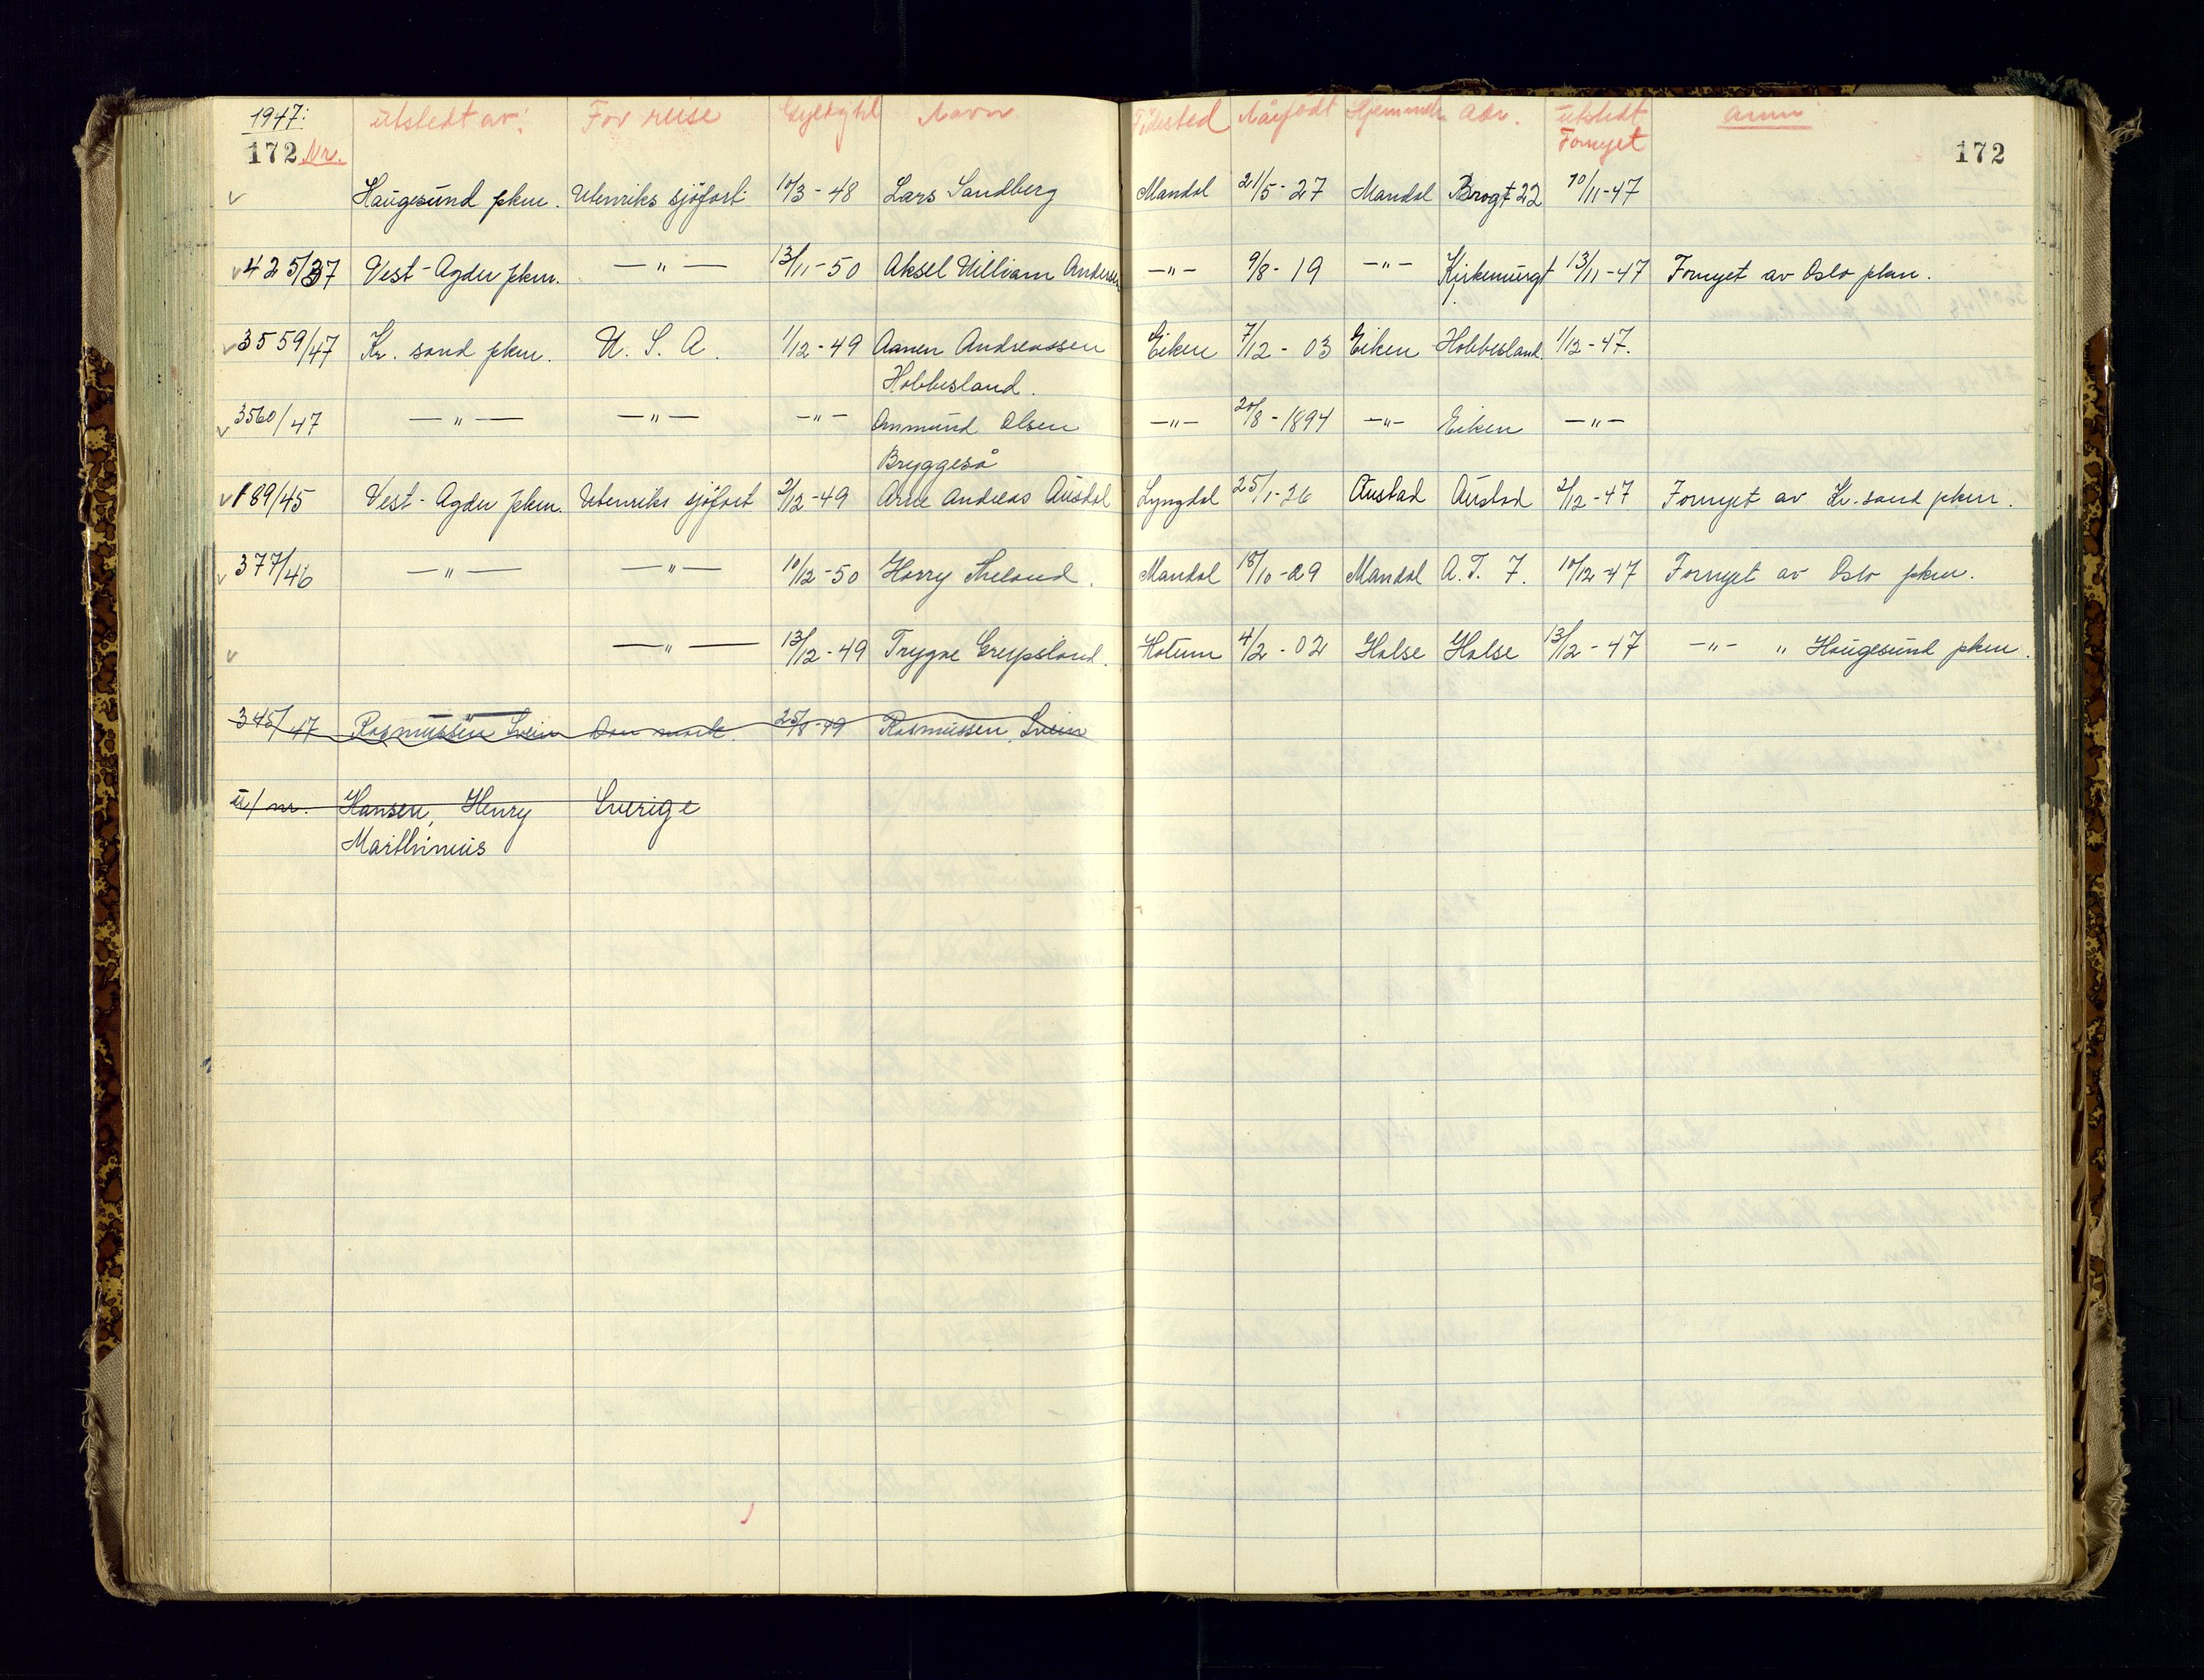 1947: utstedt av: For reise Gyldig til Navn Fødested Når født Hjemmeh. Adr. utstedt Anm:
172 Nr. Fornyet 172
✓ Haugesund pkm. Utenriks sjøfart 10/3 - 48 Lars Sandberg Mandal 21/5 - 27 Mandal Brogt 22 10/11-47
✓ 425/37 Vest-Agder pkm. — " — 13/11-50 Aksel William Andersen — " — 9/8 - 19 — " — Kirkemurgt 13/11-47 Fornyet av Oslo pkm.
✓ 3559/47 Kr. sand pkm. U. S. A. 1/12 - 49 Aanen Andreassen Eiken 7/12 - 03 Eiken Hobbesland. 1/12-47.
Hobbesland.
✓ 3560/47 — " — — " — — " — Ommund Olsen — " — 20/8 - 1894 — " — Eiken — " —
Bryggeså
✓ 189/45 Vest-Agder pkm. Utenriks sjøfart 2/12-49 Arne Andreas Austdal Lyngdal 25/1-26 Austad Austad 2/12-47 Fornyet av Kr. sand pkm.
✓ 377/46 — " — — " — 10/12-50 Harry Skeland. Mandal 18/10-29 Mandal A. T. 7. 10/12-47 Fornyet av Oslo pkm.
✓ — " — 13/12-49 Trygve Greipsland. Holum 4/2 - 02 Halse Halse 13/12-47 — " — " Haugesund pkm.
345/47 Rasmussen Svein Danmark 25/8-49 Rasmussen, Svein
u/nr. Hansen, Henry Sverige
Marthinius